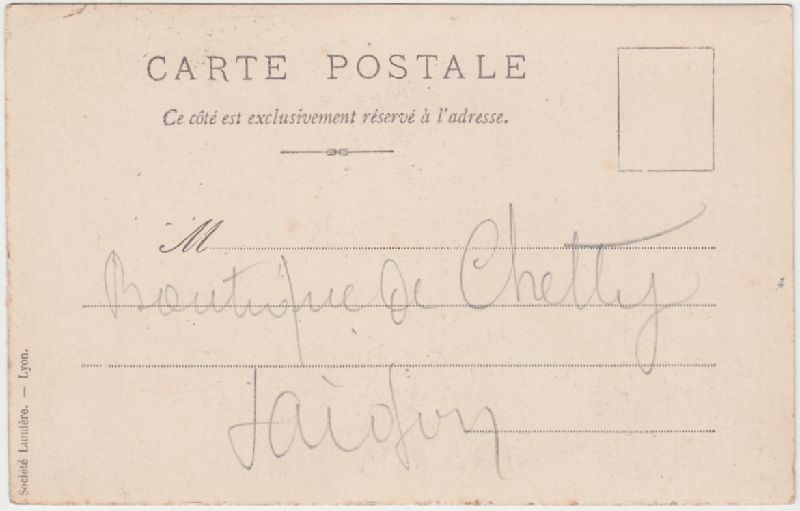 CARTE POSTALE
Ce côté est exclusivement réservé à l'adresse.
M
Boutique de Chetty
Saïgon
Société Lumière. — Lyon.